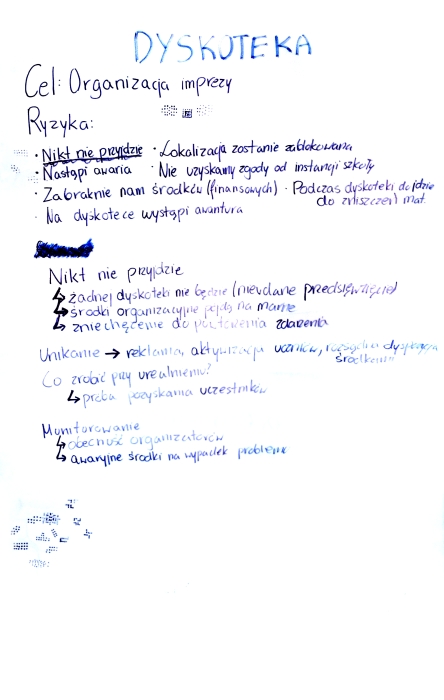 DYSKOTEKA
Cel: Organizacja imprezy
Ryzyka:
· Nikt nie przyjdzie · Lokalizacja zostanie zablokowana
· Nastąpi awaria · Nie uzyskamy zgody od instancji szkoły
· Zabraknie nam środków (finansowych) · Podczas dyskoteki dojdzie
do zniszczeń mat.
· Na dyskotece wystąpi awantura
Nikt nie przyjdzie
↳ żadnej dyskoteki nie będzie (nieudane przedsięwzięcie)
↳ środki organizacyjne pójdą na marne
↳ zniechęcenie do powtórzenia zdarzenia
Unikanie → reklama, aktywizacja uczniów, rozsądna dyspozycja
środkami
Co zrobić przy urealnieniu?
↳ próba pozyskania uczestników
Monitorowanie
↳ obecność organizatorów
↳ awaryjne środki na wypadek problemu